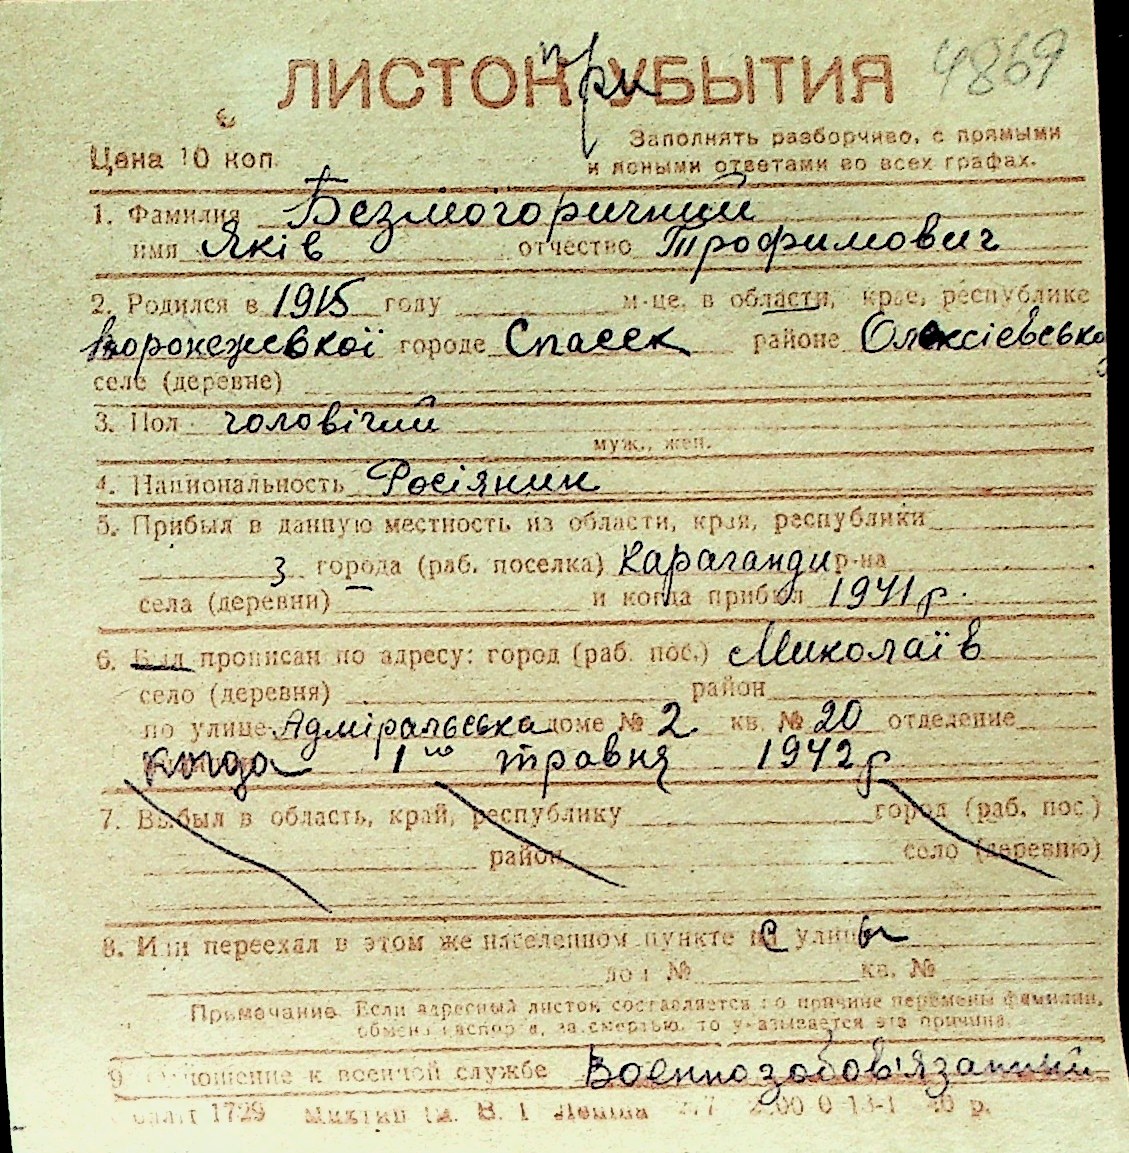 4869
ЛИСТОК при УБЫТИЯ
Цена 10 коп.
Заполнять разборчиво, с прямыми
и ясными ответами во всех графах.
1. Фамилия Безмогоричний
имя Яків отчество Трофимович
2. Родился в 1915 году м-це, в области, крае, республике
Воронежської городе Спасек районе Олексіевсько
селе (деревне)
3. Пол чоловічий
муж., жен.
4. Национальность Росіянин
5. Прибыл в данную местность из области, края, республики
з города (раб. поселка) Караганди р-на
села (деревни) — и когда прибыл 1941 р.
6. Был прописан по адресу: город (раб. пос.) Миколаїв
село (деревня) район
по улице Адміральська доме № 2 кв. № 20 отделение
когда 1го травня 1942 р
7. Выбыл в область, край, республику город (раб. пос.)
район село (деревню)
8. Или переехал в этом же населенном пункте с улицы
дом № кв. №
Примечание. Если адресный листок составляется по причине перемены фамилии,
обмена паспорта, за смертью, то указывается эта причина.
9. Отношение к военной службе Военнозобов'язанний
1729 им. В. І. Леніна